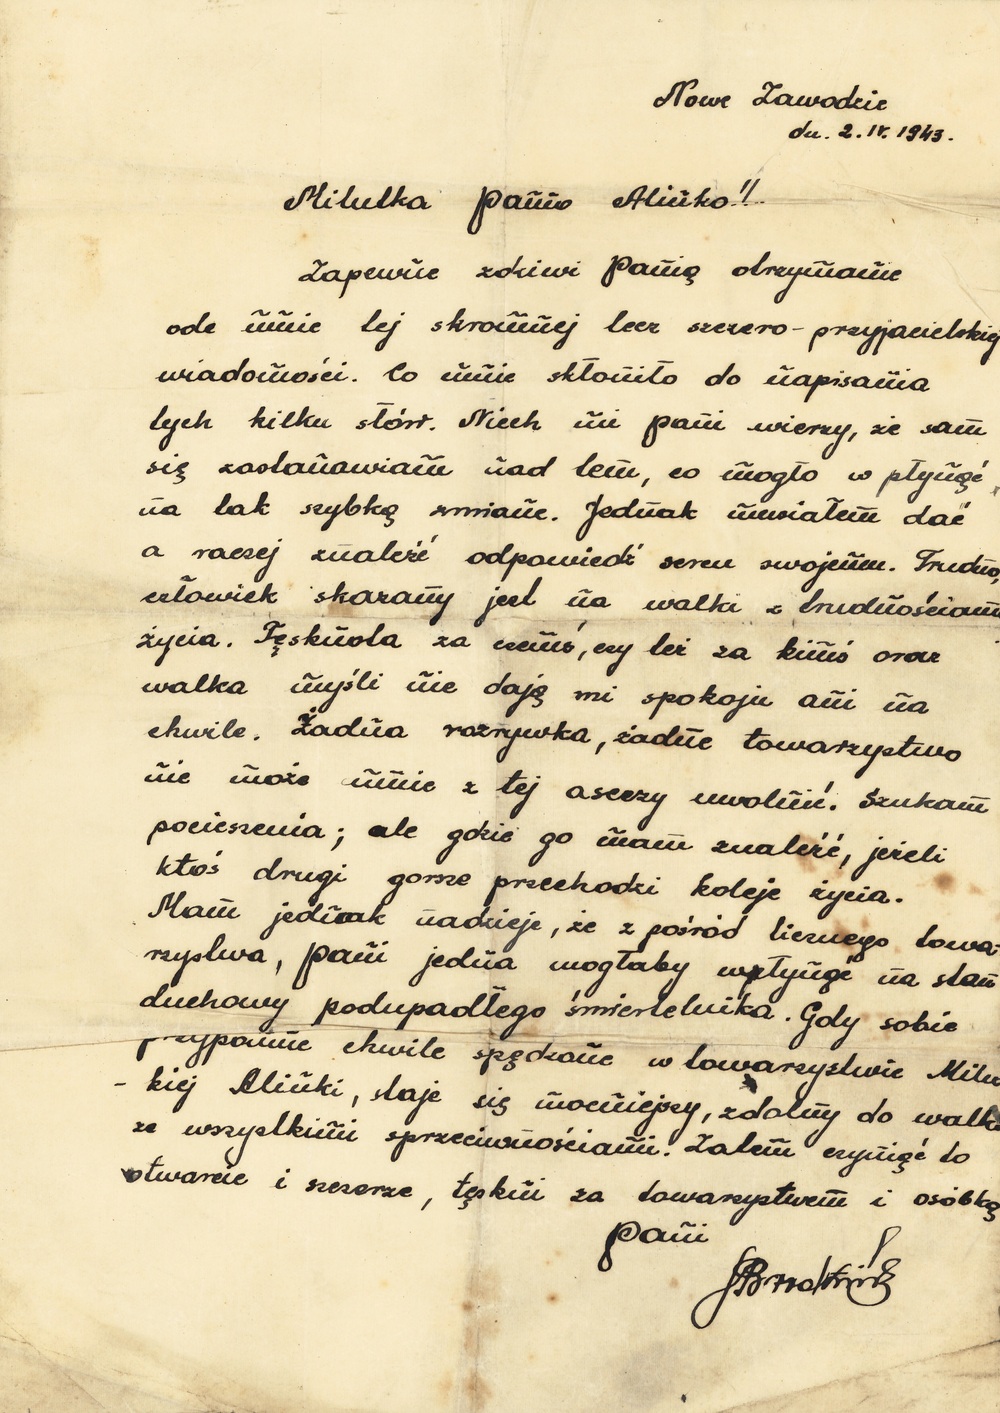 Nowe Zawodzie
dn. 2.IV.1943.
Milutka Panno Alinko!!
Zapewne zdziwi Panią otrzymanie
ode mnie tej skromnej lecz szczero-przyjacielskiej
wiadomości. Co mnie skłoniło do napisania
tych kilku stów. Niech mi pani wierzy, że sam
się zastanawiam nad tem, co mogło w płynąć
na tak szybką zmianę. Jednak musiałem dać
a raczej znaleźć odpowiedź sercu swojemu. Trudno,
człowiek skazany jest na walki z trudnościami
życia. Tęsknota za czemś, czy też za kimś oraz
walka myśli nie dają mi spokoju ani na
chwile. Żadna rozrywka, żadne towarzystwo
nie może mnie z tej ascezy uwolnić. Szukam
pocieszenia; ale gdzie go mam znaleźć, jeżeli
ktoś drugi gorsze przechodzi koleje życia.
Mam jednak nadzieje, że z pośród licznego towa-
rzystwa, pani jedna mogłaby wpłynąć na stan
duchowy podupadłego śmiertelnika. Gdy sobie
przypomne chwile spędzone w towarzystwie Milu
-kiej Alinki, staje się mocniejszy, zdolny do walki
ze wszystkimi sprzeciwnościami. Zatem czynię to
otwarcie i szczerze, tęskni za towarzystwem i osóbką
Pani